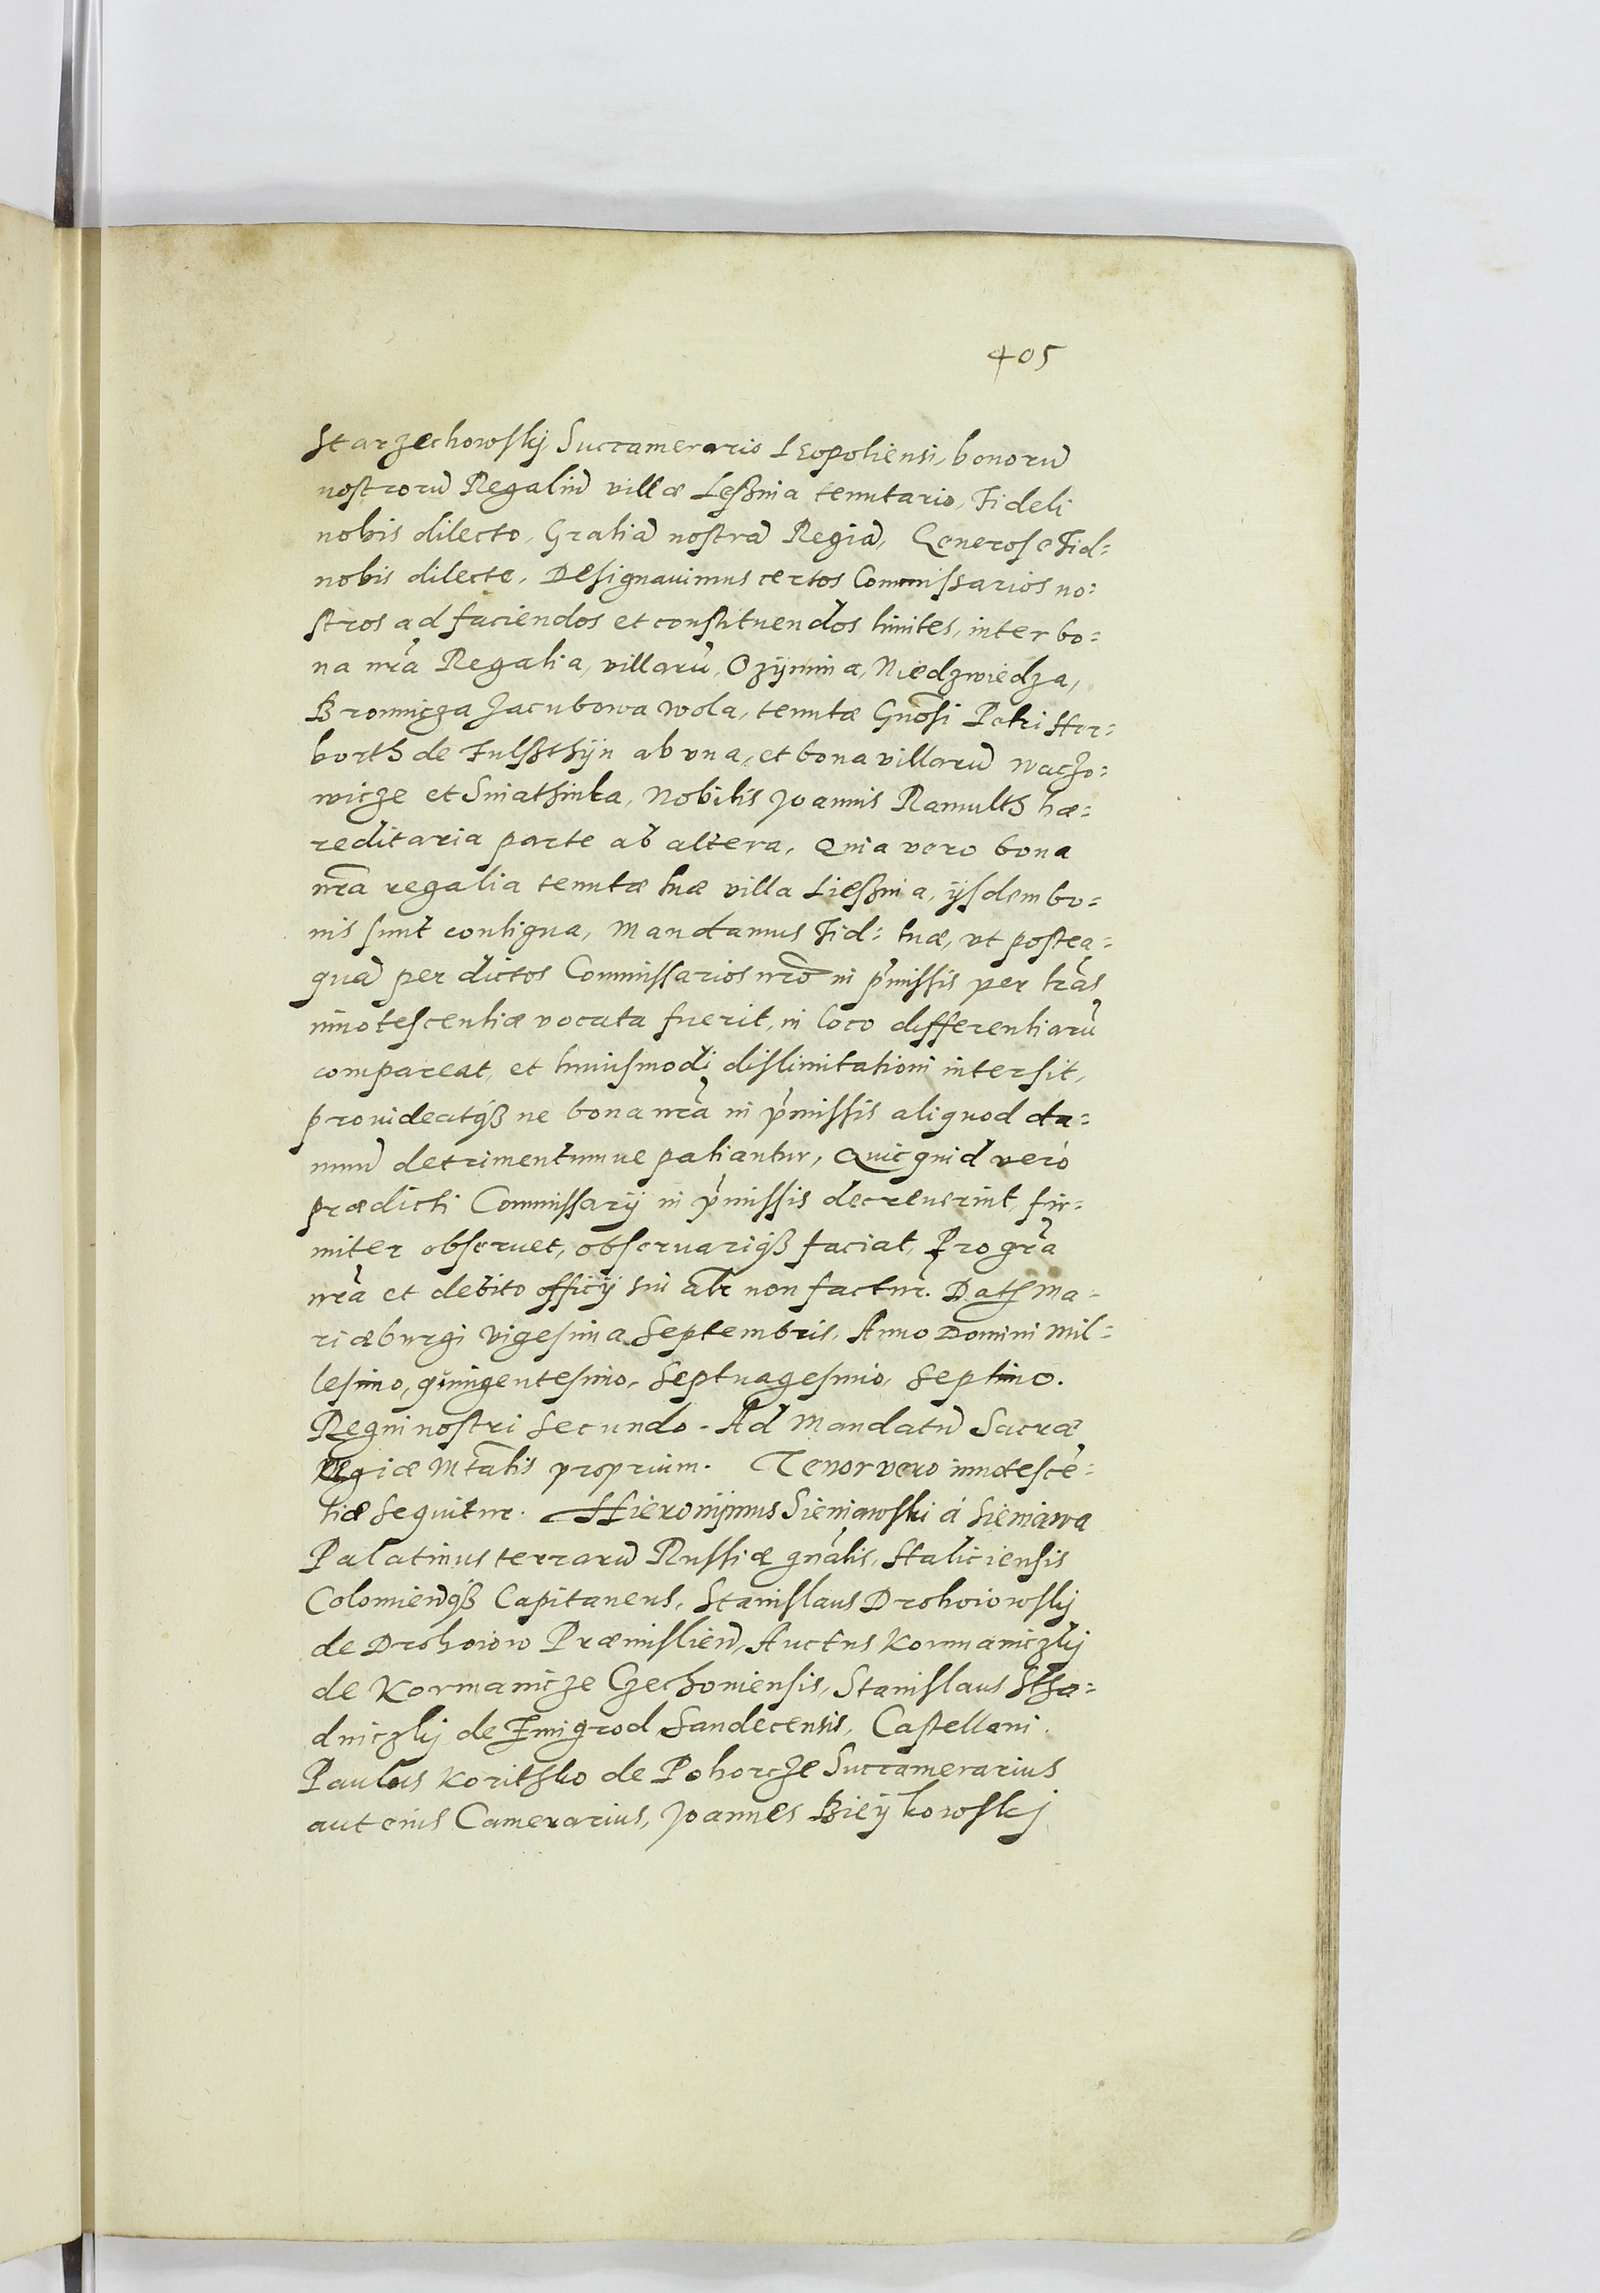 405
Starzechowskij Succamerario Leopoliensi, bonorũ
nostrorũ Regaliũ villæ Leßnia tenutario, Fideli
nobis dilecto, Gratiã nostrã Regiã, Generose Fid=
nobis dilecte, Designauimus certos Commissarios no=
stros ad faciendos et constituendos limites, inter bo=
na nrã Regalia, villarũ, Ozÿmina, Niedzwiedza,
Bronnicza Jacubowa wola, tenutæ Gnõsi Petri Her=
borth de Fulßthÿn ab vna, et bona villarũ waczo=
wicze et Sniathinka, Nobilis Joannis Ramulth hæ=
reditaria parte ab altera, Quia vero bona
nrã regalia tenutæ tuæ villa Ließnia, ÿsdem bo=
nis sunt contigua, Mandamus Fid= tuæ, vt postea=
quã per dictos Commissarios nrõ in p̃missis per lrãs
innotescentiæ vocata fuerit, in loco differentiarũ
compareat, et huiusmodi dislimitationi intersit,
prouideatqß ne bona nrã in p̃missis aliquod da=
mnũ detrimentumue patiantur, Quicquid verò
prædicti Commissarÿ in p̃missis decreuerint, fir=
miter obseruet, obseruariqß faciat, Pro grã
nrã et debito officÿ sui alr̃ non factur̃. Dat Ma=
riæburgi vigesima Septembris, Anno Domini Mil=
lesimo, quingentesimo, Septuagesimo, Septimo.
Regni nostri Secundo. Ad Mandatũ Sacræ
Regiæ Mtãtis proprium. Tenor vero innotescẽ=
tiæ sequitur. Hieronÿmus Sieniawski á Sieniawa
Palatinus terrarũ Russiæ gnãlis, Haliciensis
Colomienqß Capitaneus, Stanislaus Drohoiowskij
de Drohoiow Præmislieñ, Auctus Kormaniczkij
de Kormanicze Czechoniensis, Stanislaus Stha=
dniczkij de Zmigrod Sandecensis, Castellani.
Paulus Koritsko de Pohorcze Succamerarius
aut eius Camerarius, Joannes Bieÿkowskj